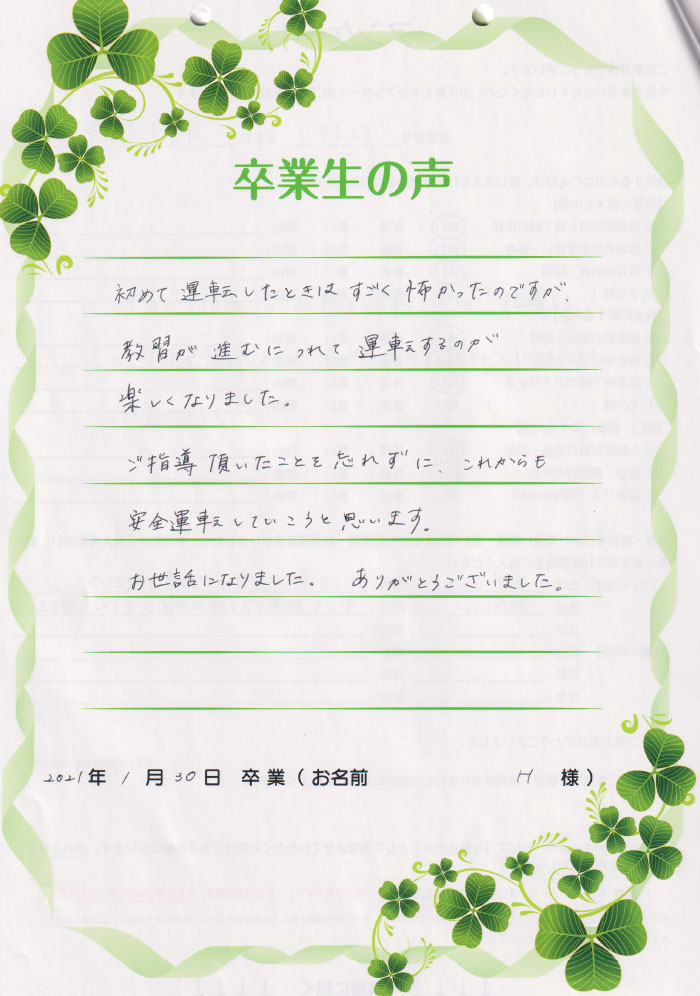 卒業生の声
初めて運転したときはすごく怖かったのですが、
教習が進むにつれて運転するのが
楽しくなりました。
ご指導頂いたことを忘れずに、これからも
安全運転していこうと思います。
お世話になりました。 ありがとうございました。
2021年 1月30日 卒業(お名前 H 様)